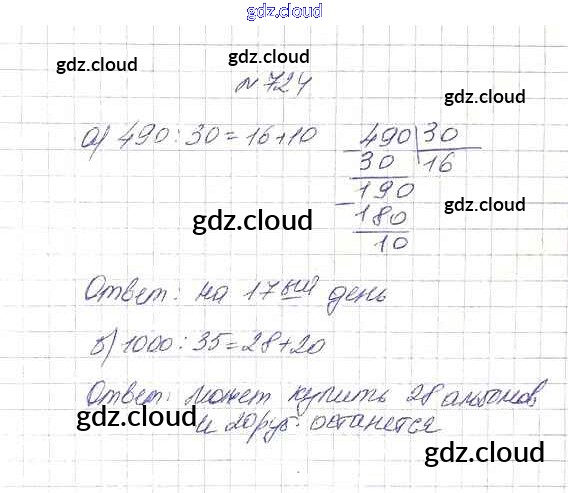 gdz.cloud
gdz.cloud
gdz.cloud
N 724
gdz.cloud
а) 490 : 30 = 16+10
490 30
30 16
190
180
10
gdz.cloud
gdz.cloud
Ответ: на 17ый день
gdz.cloud
б) 1000 : 35 = 28+20
gdz.cloud
Ответ: может купить 28 альбомов,
и 20 руб. останется
gdz.cloud
gdz.cloud